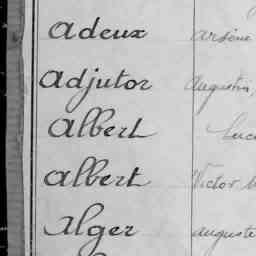 Adeux Arsène
Adjutor Augustin,
Albert
Albert Victor
Alger Auguste